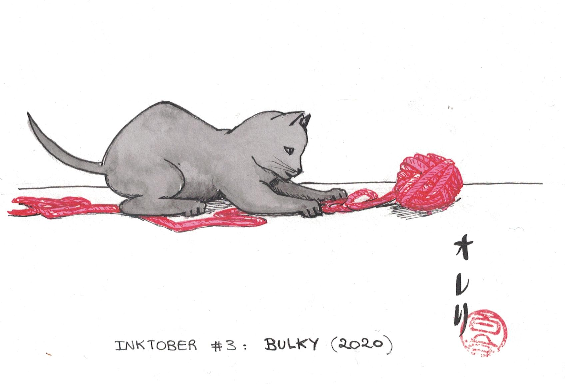 オレリ
INKTOBER #3: BULKY (2020)